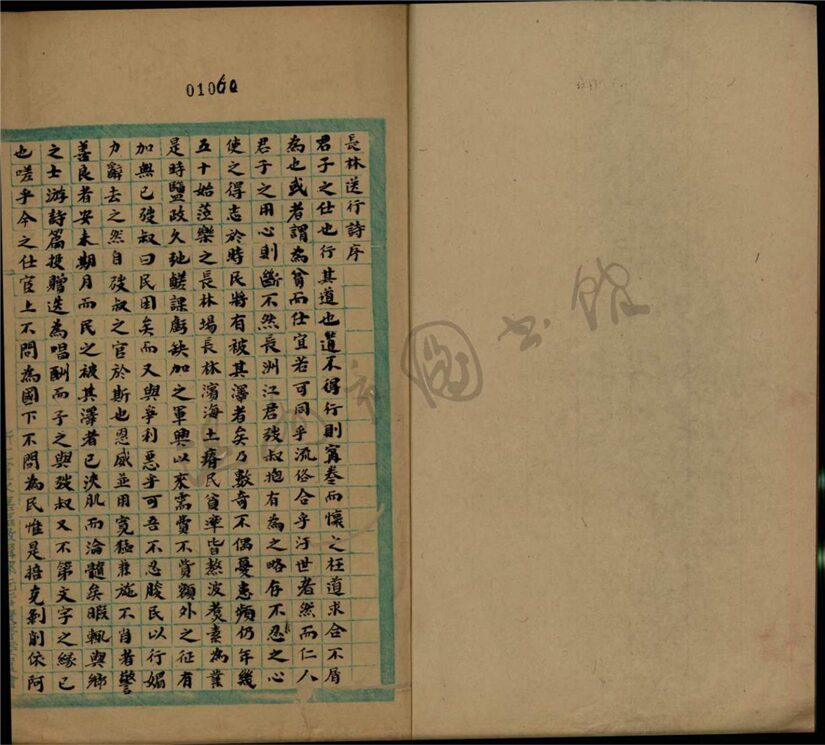 01060
長林送行詩序
君子之仕也行其道也道不得行則甯卷而懷之枉道求合不屑
為也或者謂為貧而仕宜若可同乎流俗合乎汙世者然而仁人
君子之用心則斷不然長洲江君弢叔抱有為之略存不忍之心
使之得志於時民將有被其澤者矣乃數奇不偶憂患頻仍年幾
五十始蒞樂之長林場長林濱海土瘠民貧率皆熬波煑素為業
是時鹽政久弛鹺課虧缺加之軍興以來需費不貲額外之征有
加無已弢叔曰民困矣而又與爭利惡乎可吾不忍朘民以行媚
力辭去之然自弢叔之官於斯也恩威並用寬猛兼施不肖者警
善良者安未期月而民之被其澤者已浹肌而淪髓矣暇輒與鄉
之士游詩篇投贈迭為唱酬而子之與弢叔又不第文字之緣已
也嗟乎今之仕官上不問為國下不問為民惟是掊克剝削依阿
圖書館